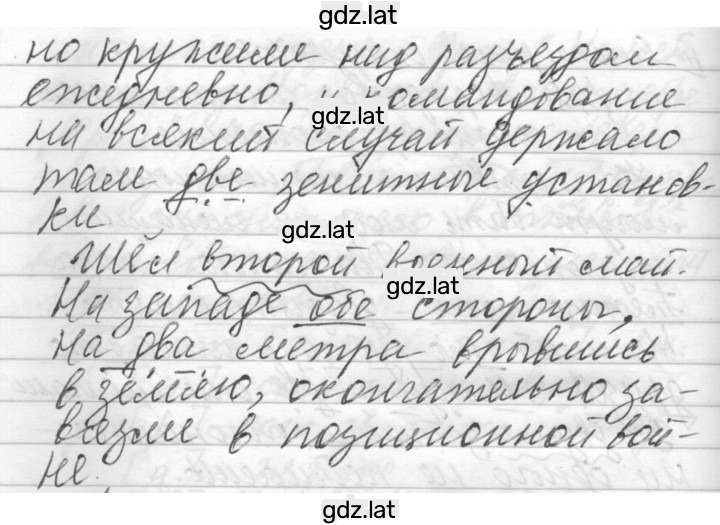 gdz.lat
но кружили над разъездом
ежедневно, и командование
gdz.lat
на всякий случай держало
там две зенитные установ-
ки.
gdz.lat
Шёл второй военный май.
gdz.lat
На западе обе стороны,
на два метра врывшись
в землю, окончательно за-
вязли в позиционной вой-
не.
gdz.lat